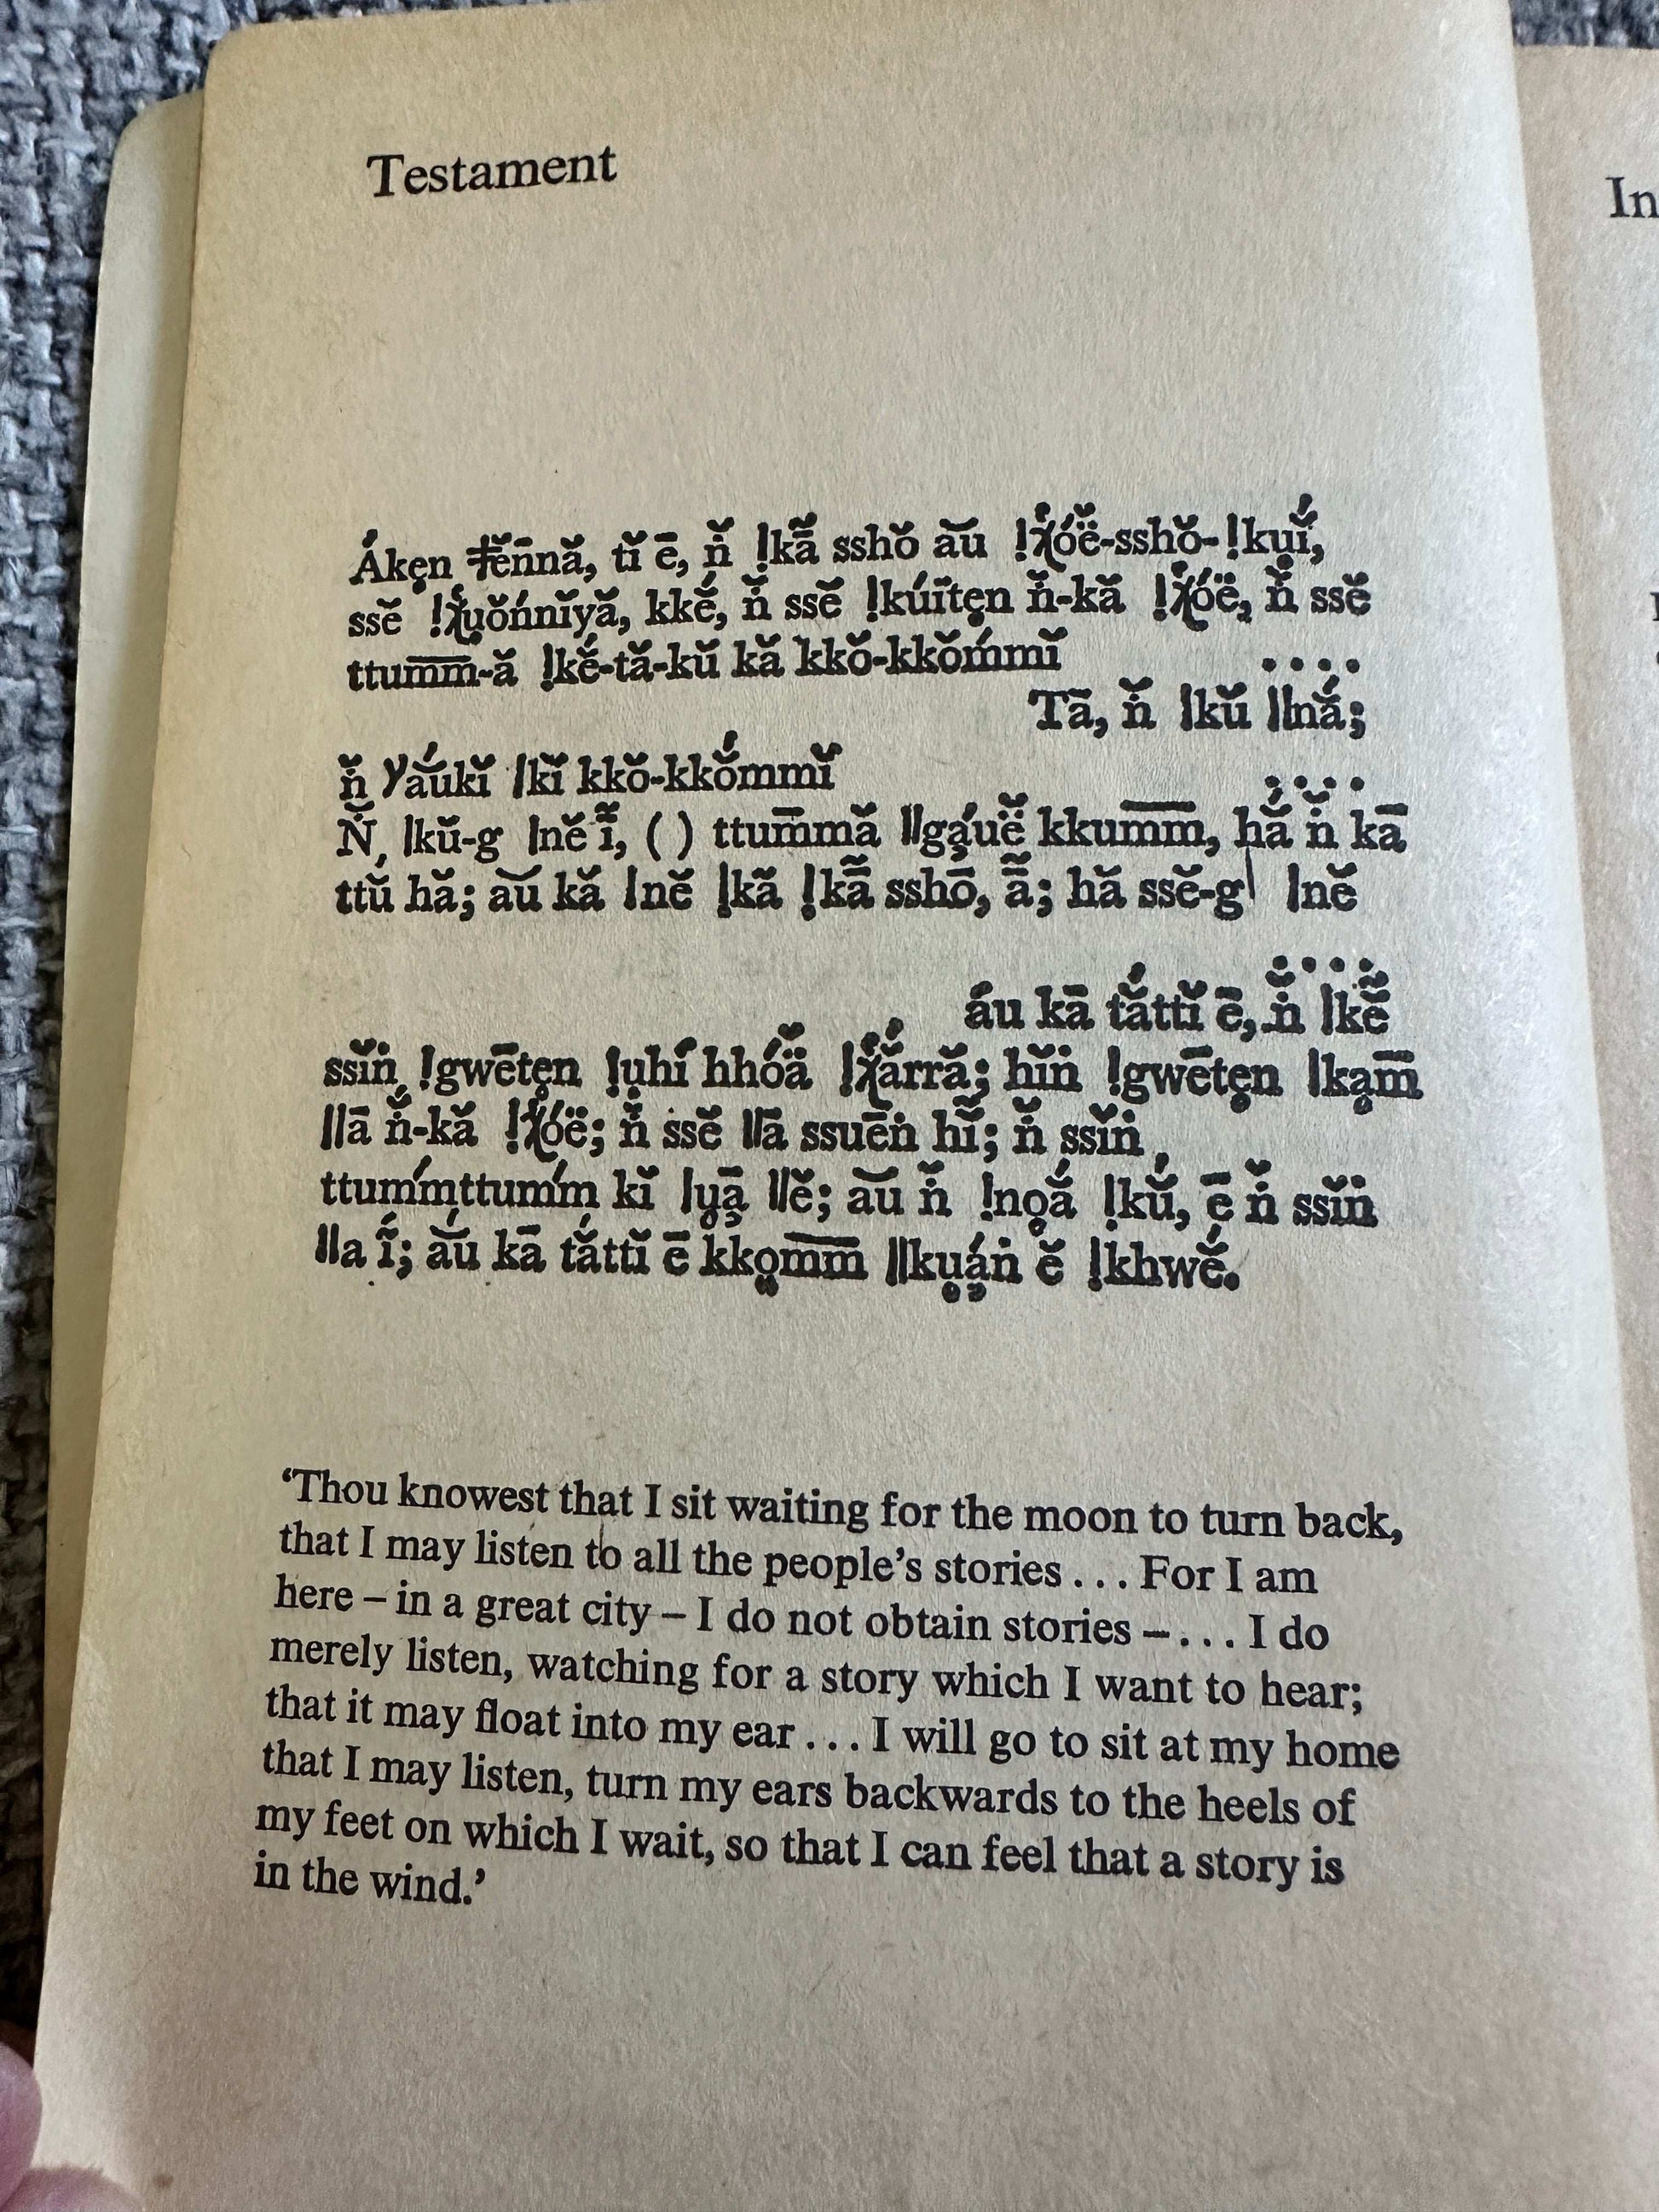 Testament
Ákẹn ǂĕnnă, tĭ ē, n̆̇ ǃkā̆ sshŏ ău ǃχóë-sshŏ-ǃkuĭ́,
ssĕ ǃχuŏńnĭyă, kkĕ́, n̆̇ ssĕ ǃkúïtẹn n̆̇-kă ǃχóë, n̆̇ ssĕ
ttumm̅-ă ǃkĕ́-tă-kŭ kă kkŏ-kkŏḿmĭ ....
Tā, n̆̇ ǀkŭ ǁnắ;
n̆̇ yắukĭ ǀkĭ kkŏ-kkŏ́mmĭ ....
N̆̇ ǀkŭ-g ǀnĕ ĩ, ( ) ttum̅mă ǁgạ́uë kkumm̅, hắ n̆̇ kā
ttŭ hă; ău kă ǀnĕ ǀkă ǃkā̆ sshō, ā̃; hă ssĕ-g ǀnĕ
....
áu kā tắttĭ ē, n̆̇ ǀkĕ̈
ssĭṅ ǃgwētẹn ǃụhí hhóä ǀχắrră; hĭṅ ǃgwētẹn ǀkạm̅
ǁā n̆̇-kă ǃχóë; n̆̇ ssĕ ǁā ssuēṅ hĭ; n̆̇ ssĭṅ
ttumḿttumḿ kĭ ǀụạ̄ ǁĕ; ău n̆̇ ǃnọắ ǀkŭ́, ē n̆̇ ssĭṅ
ǁa ĩ́; ắu kā tắttĭ ē kkọmm̅ ǁkụạ́ṅ ĕ ǃkhwĕ́.
‘Thou knowest that I sit waiting for the moon to turn back,
that I may listen to all the people’s stories . . . For I am
here – in a great city – I do not obtain stories – . . . I do
merely listen, watching for a story which I want to hear;
that it may float into my ear . . . I will go to sit at my home
that I may listen, turn my ears backwards to the heels of
my feet on which I wait, so that I can feel that a story is
in the wind.’
In